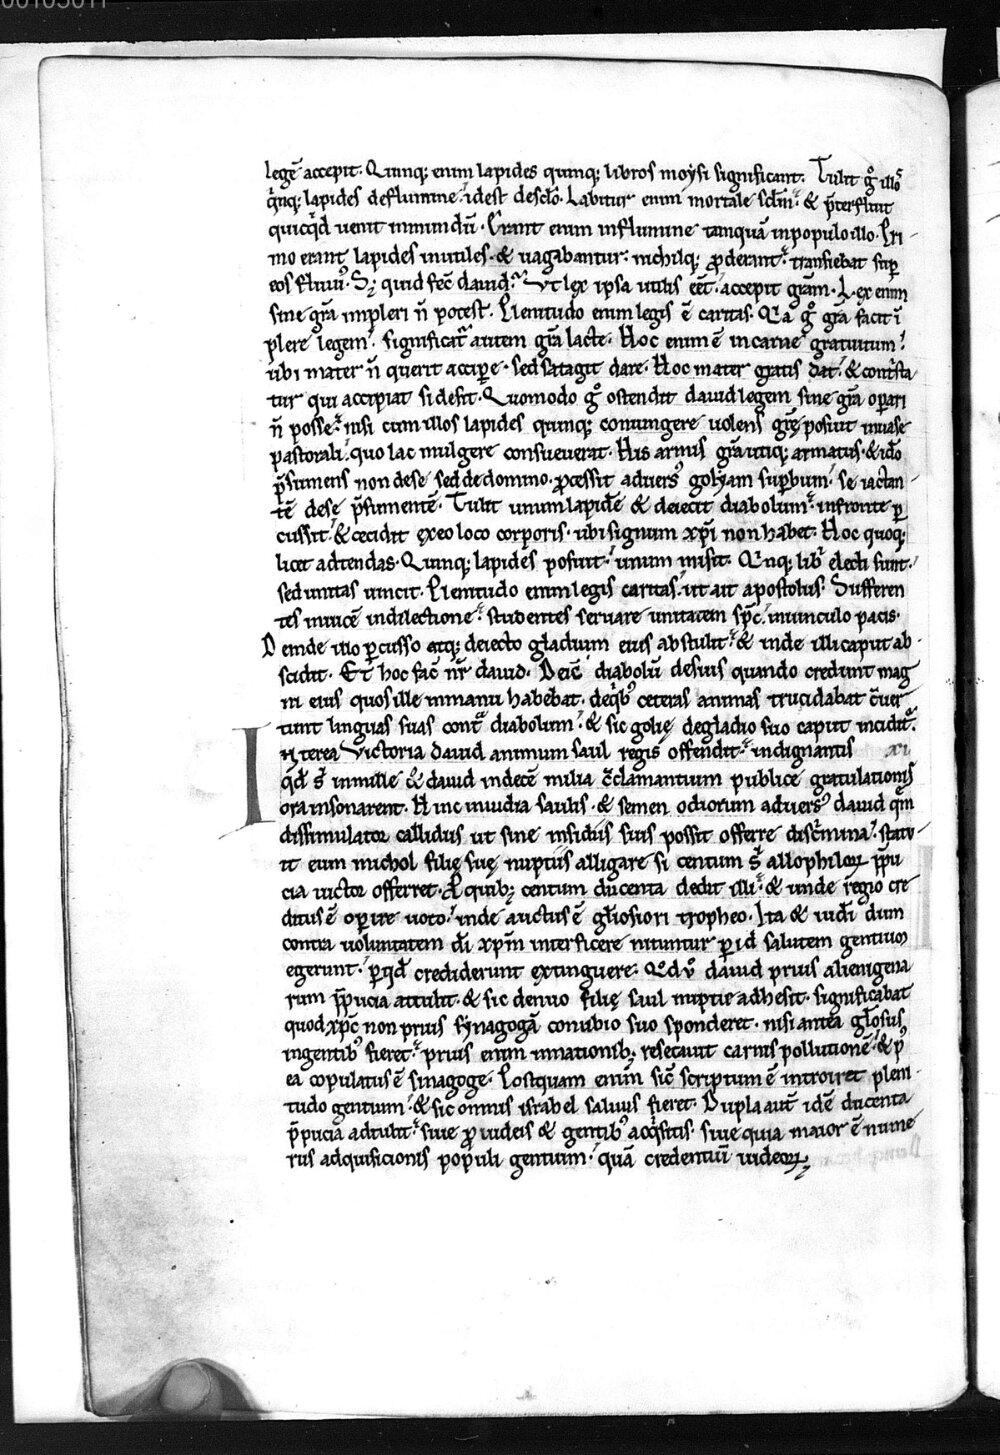 legē accepit. Quinq; enim lapides quinq; libros moysi significant. Tulit gͦ illos
qͥnq; lapides deflumine. idest desclo. Labitur enim mortale sclm. & pͥterfluit
quicqͥd uenit inmundū. Erant enim influmine tanquā inpopulo illo. Pri-
mo erant lapides inutiles. & uagabantur. nichilq; ꝓderant. transiebat sup
eos fluuiꝰ. Sꝫ quid fec̄ dauid. Vt lex ipsa utilis eēt. accepit grām. Lex enim
sine grā impleri n̄ potest. Plenitudo enim legis ē caritas. Ea gͦ grā facit ī
plere legem. significat autem grā lacte. Hoc enim ē incarne gratuitum.
ubi mater n̄ querit accipe. sed satagit dare. Hoc mater gratis dat. & contrista
tur qui accipiat si desit. Quomodo gͦ ostendit dauid legem sine grā operari
n̄ posse. nisi cum illos lapides quinq; coniungere uolens grę posuit inuase
pastorali. quo lac mulgere consueuerat. His armis grā utiq; armatus. & ido
p̄sumens non dese sed dedomino. ꝓcessit aduersꝰ golyam supbum. se iactan-
tē dese p̄sumentē. Tulit unum lapidē & deiecit diabolum. infronte ꝑ
cussit. & cecidit exeo loco corporis. ubi signum xp̄i non habet. Hoc quoq;
licet adtendas. Quinq; lapides posuit. unum misit. Qnq; libri electi sunt.
sed unitas uincit. Plenitudo enim legis caritas. ut ait apostolus. Sufferen
tes inuicē indilectione. studentes seruare unitatem spc̄. inuinculo pacis.
Deinde illo ꝑcusso atq; deiecto gladium eius abstulit. & inde illi caput ab-
scidit. Et hoc fac̄ nr̄ dauid. Deic̄ diabolū desuis quando credunt mag
ni eius quos ille inmanu habebat. deqͥbꝰ ceteras animas trucidabat cuer
tunt linguas suas contͣ diabolum. & sic golię degladio suo caput inciditͬ.
Interea victoria dauid animum saul regis offendit. indignantis xi
qd s̄ inmille & dauid indecē milia c̄clamantium publice gratulationis
ora insonarent. Hinc inuidia saulis. & semen odiorum aduersꝰ dauid qm̄
dissimulator callidus ut sine insidiis suis possit offerre discͥmina. statu-
it eum michol filię suę nuptiis alligare si centum s̄ allophiloꝝ p̄pu
cia uictor offerret. Equibꝫ centum ducenta dedit illi. & unde regio cre
ditus ē opire uoto. inde auctus ē gl̄iosiori tropheo. Ita & iudi dum
contra uoluntatem di xp̄m interficere nituntur ꝑ id salutem gentium
egerunt. ꝑ qd crediderunt extinguere. Qd v̄ dauid prius alienigena
rum p̄pucia attulit. & sic denuo filię saul nuptie adhesit. significabat
quod xp̄c non prius synagogā conubio suo sponderet. nisi antea gl̄osus
ingentibꝰ fieret. prius enim innationibꝫ resecauit carnis pollutionē. & pꝰ
ea copulatus ē sinagoge. Postquam enim sic̄ scriptum ē introiret pleni-
tudo gentium. & sic omnis israhel saluus fieret. Dupla aut̄ idē ducenta
p̄pucia adtulit. siue ꝓ iudeis & gentibꝰ acqͥsitis. siue quia maior ē nume
rus adquisicionis populi gentium. quā credentiū iudeoꝝ.